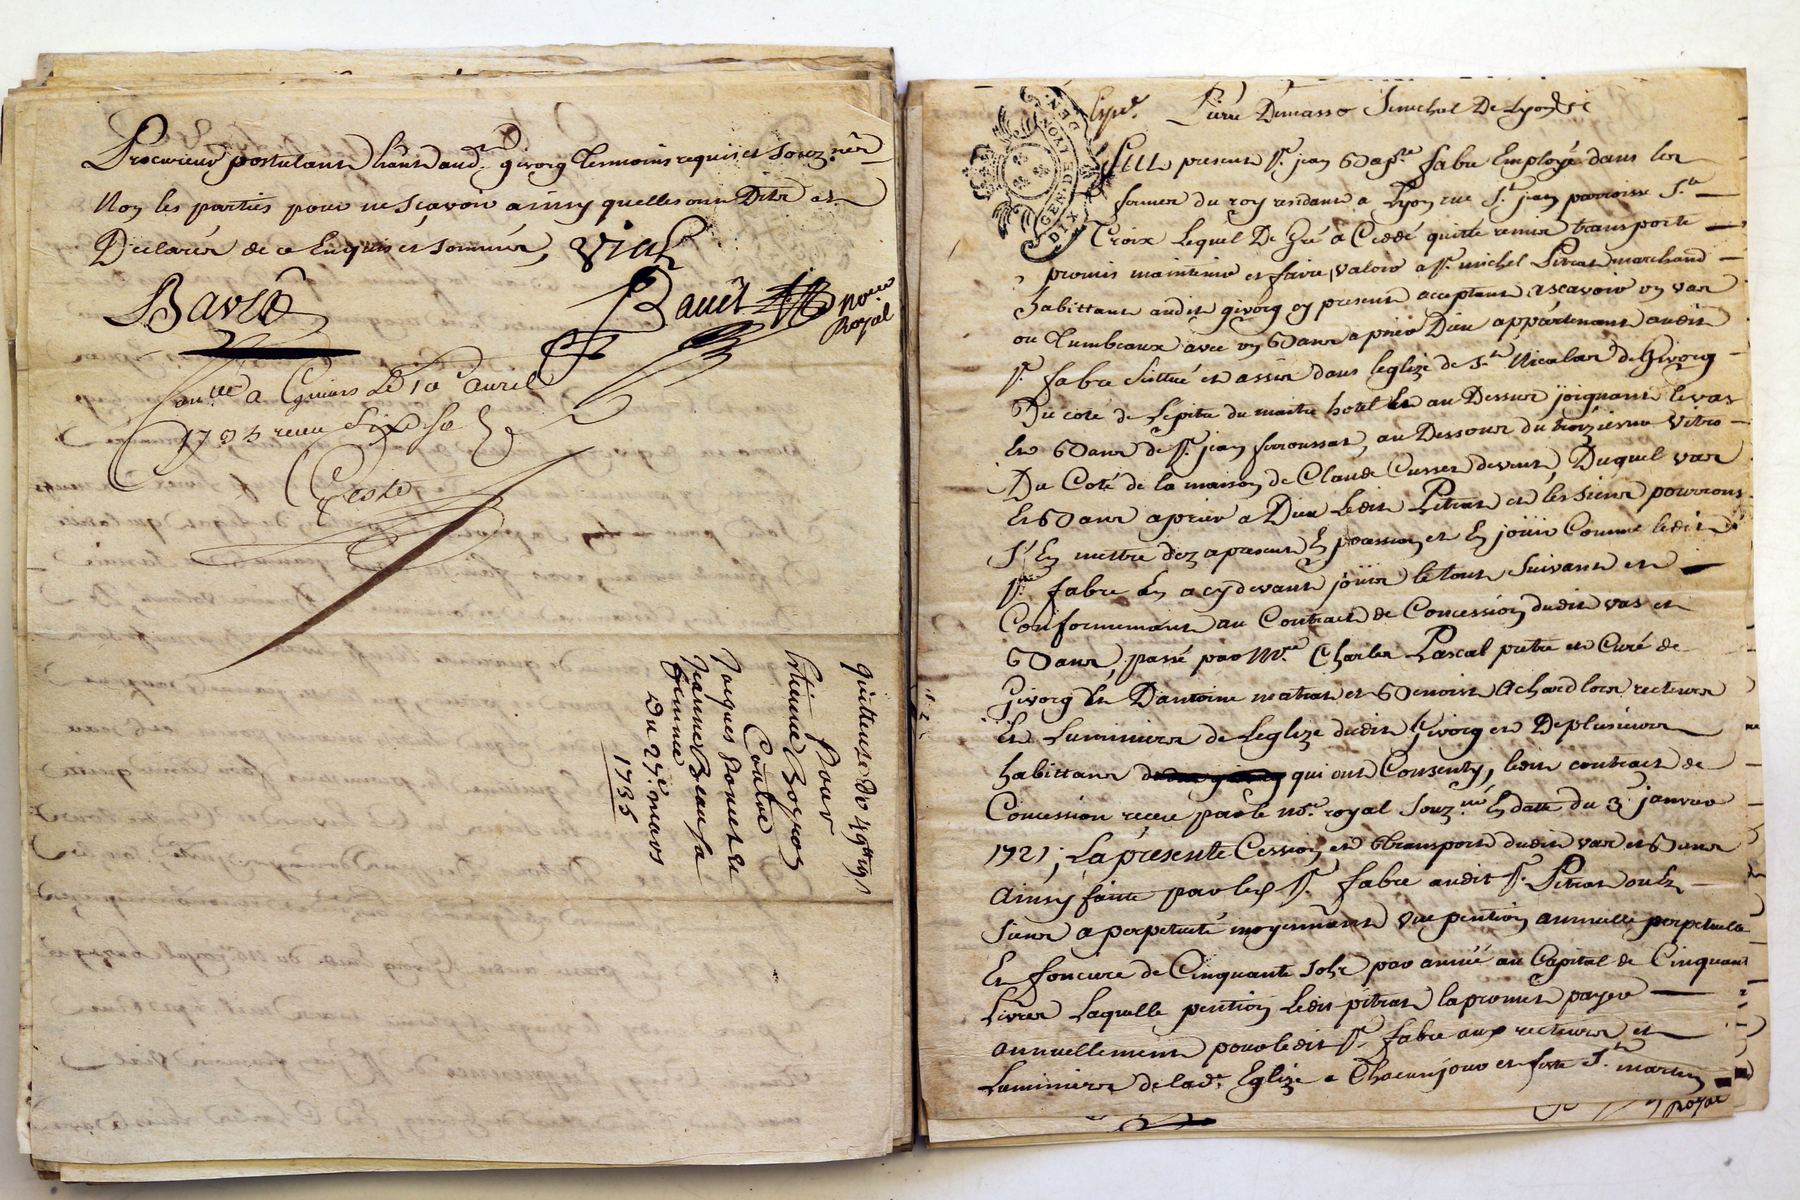 Procureur postulant haut aud. givorg tesmoins requis et souz.nes
Non les parties pour ne sçavoir ainsy quelles ont Dit et
Declarés de ce Enquis et sommés, Vial
Bavet
Bavet no.re
Royal
a Le 10e avril
1735 receu six s.
Teste
quittance de 49tt 19s
Pour
Estienne Boyron
Contre
Jacques Poncet et
Jeanne Beaufa
femme
Du 27e mars
1735
GEN. DE LION DEN.
DIX
Exp.e Pierre Dumasso Senechal De Lyon &c
Fut present Sr. jean Bap.te fabre Employé dans les
fermes du roy residant a Lyon rue St. jean parroisse Ste
Croix Lequel De Gré a Ceddé quitté remis transporte
promis maintenir et faire valoir a Sr. michel Pitrat marchand
habittant audit givorg cy present acceptant ascavoir un vas
ou Tumbeaux avec un Banc a prier Dieu appartenant audit
Sr. fabre Sittué et assis dans leglize de St. Nicolas de Givorg
Du coté de Lepitre du maitre hotel et au Dessus joignant le vas
Et Banc de Sr. jean forroussat, au Dessous du troizieme vitro
Du Coté de la maison de Claude Cusset devent, Duquel vas
Et Banc a prier a Dieu Ledit Pitrat et les siens pourront
S'En mettre dez a present En possession et En jouir Comme ledit
Sr. fabre En a cydevant joüis le tout Suivant et
Conformement au Contract de Concession dudit vas et
Banc, passé par Mre. Charles Pascal pretre et Curé de
Givorg Et Dantoine matrat et Benoist Achard lors recteurs
Et Luminiers de Leglize dudit Givorg et De plusieurs
habittans qui ont Consenty, ledit contract de
Concession receu par le no.re royal souz.né En datte du 3 janvier
1721; La presente Cession et transport dudit vas et Banc
Ainsy faitte par led Sr. fabre audit Sr. Pitrat ou Es
Siens a perpetuité moyennant une pention annuelle perpetuelle
Et fonciere de Cinquante sols par année au Capital de Cinquant
Livres Laquelle pention Ledit pitrat la promet payer
annuellement pour ledit Sr. fabre aux recteurs et
Luminiers de lad.e Eglize a Chacun jour et feste St. martin
Royal